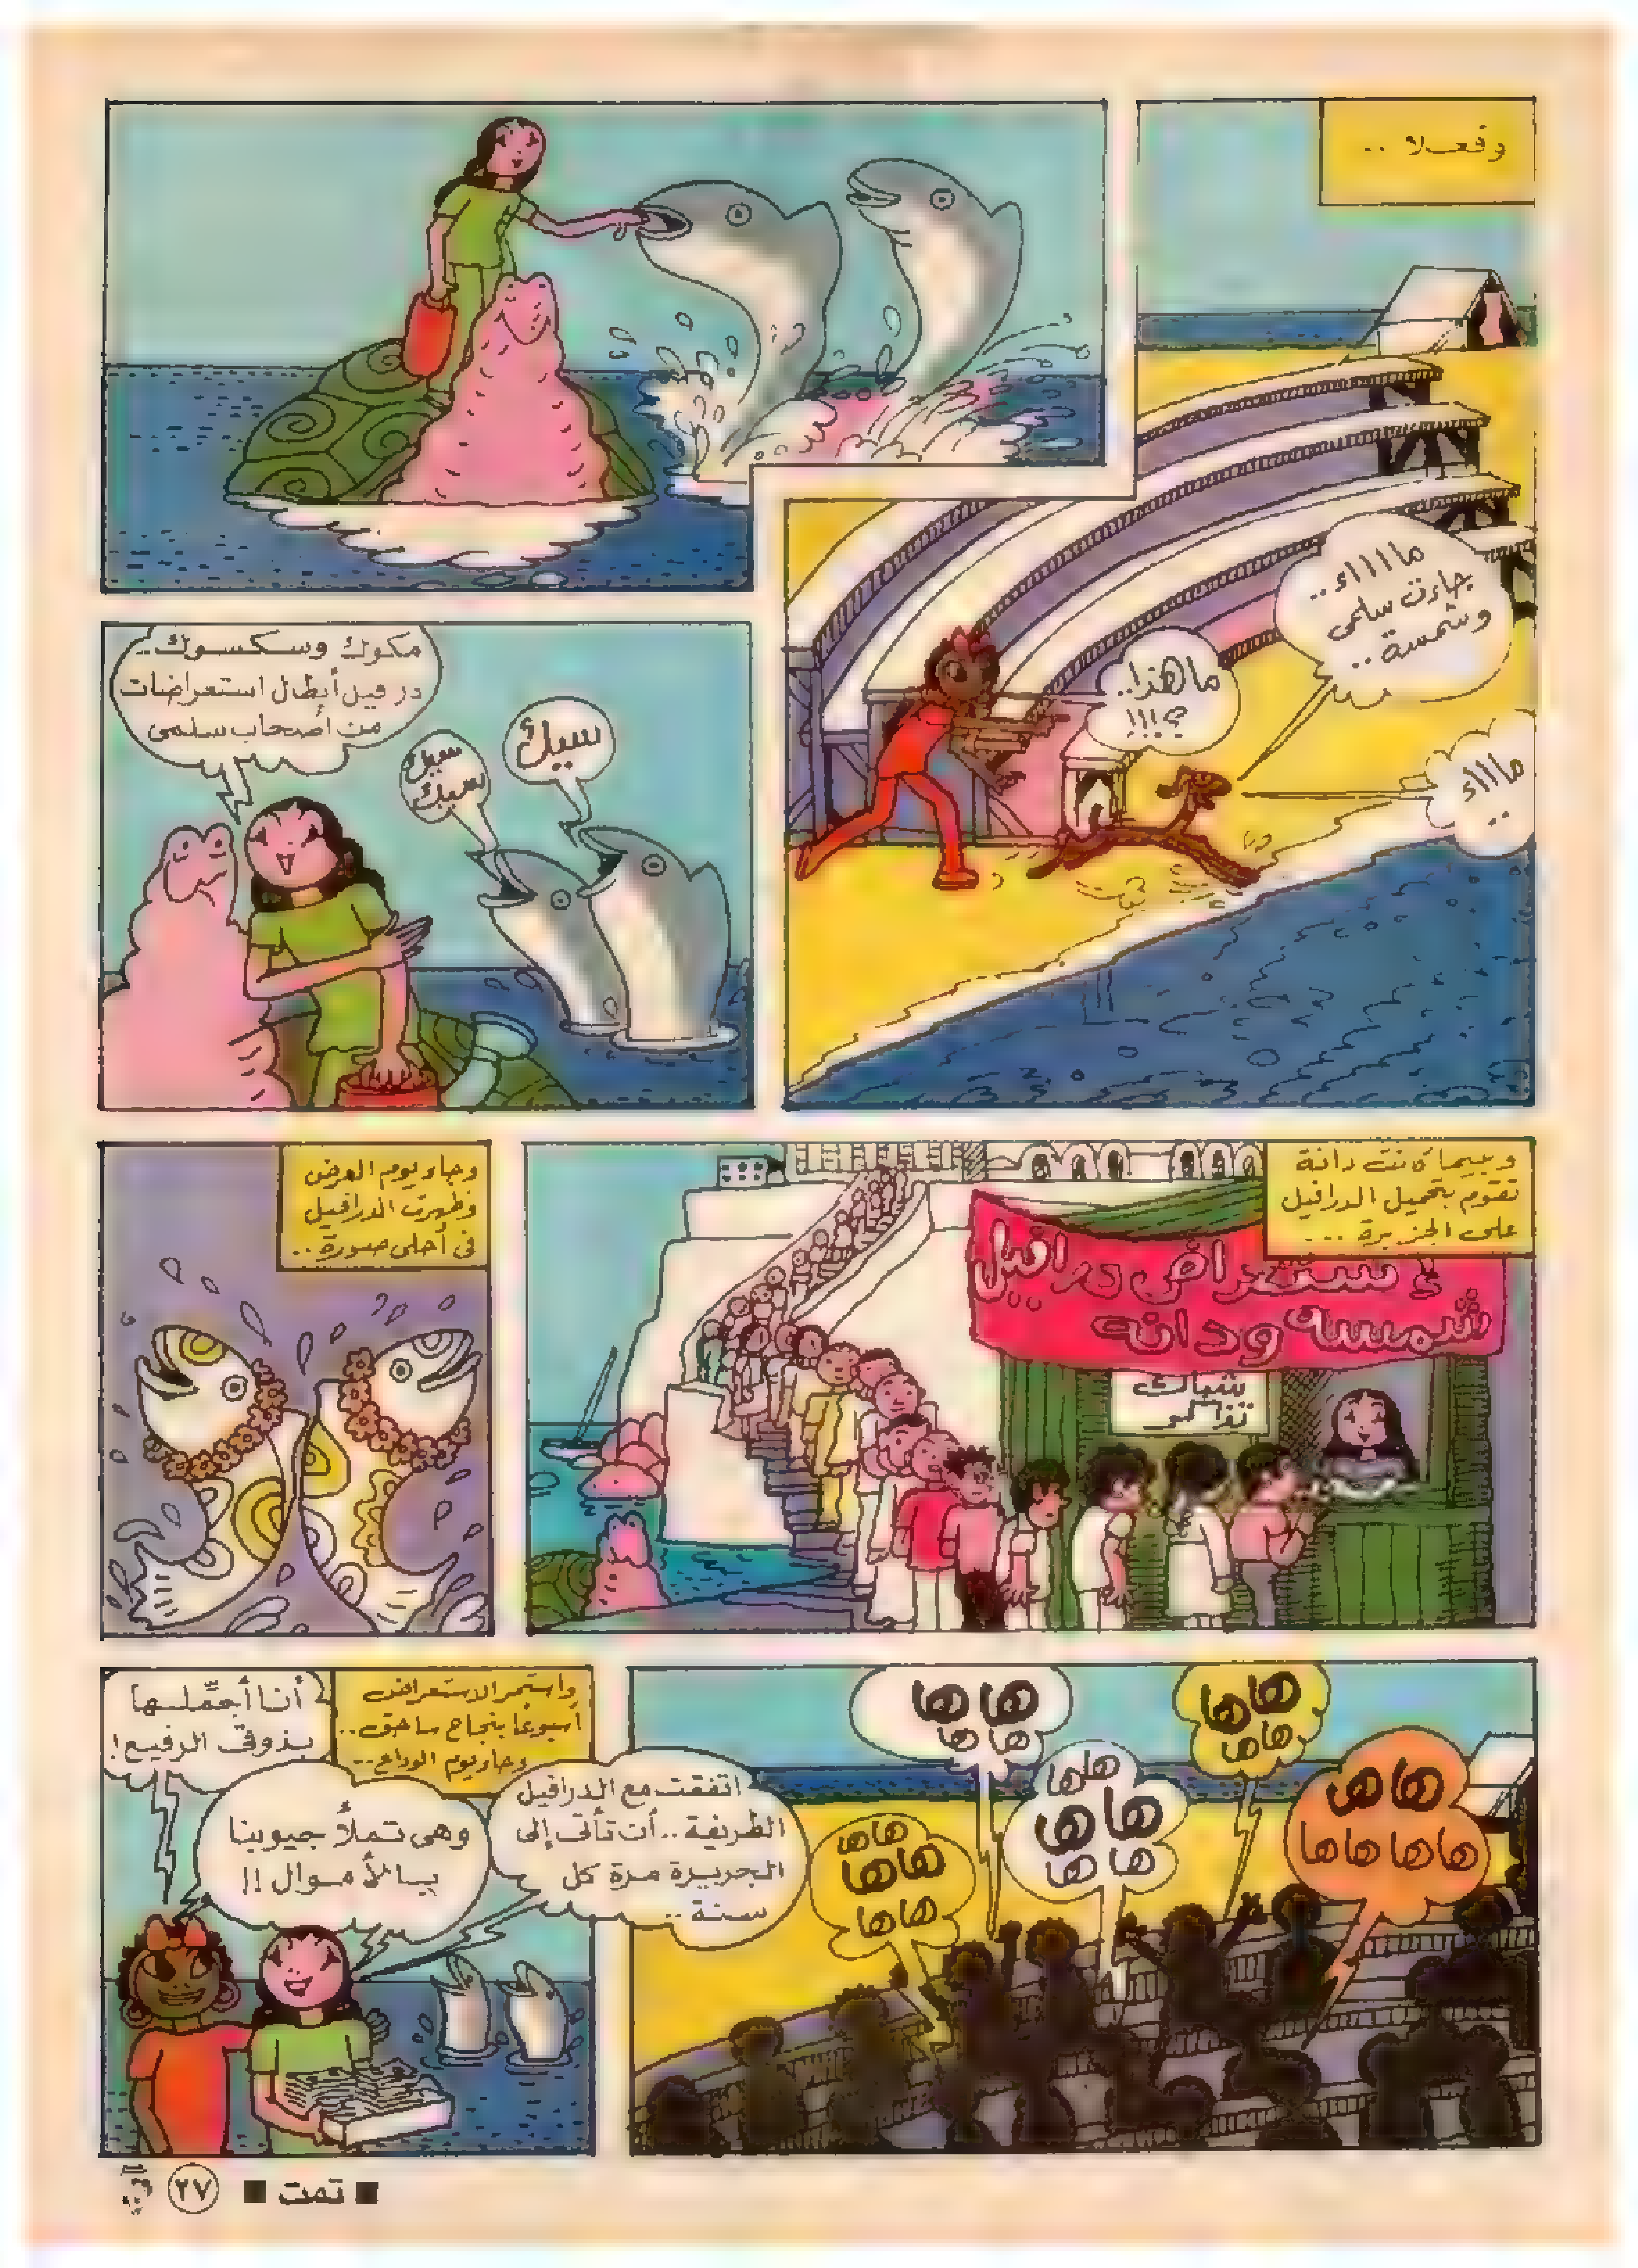 وفعلا ..
مااااء..
جاءت سلمى
وشمسة..
ما هذا..
؟!!!
ماااء
..
مكوك وسكسوك..
درفيل أبطال استعراضات
من أصحاب سلمى
سيك
سيك
سيك
وبينما كانت دانة
تقوم بتجميل الدرافيل
على الجزيرة ...
استعراض درافيل
شمسة ودانه
شباك
تذاكر
وجاء يوم العرض
وظهرت الدرافيل
فى أحلى صورة..
ها ها
ها ها
هاها
هاها
هاها
ها ها
ها ها
ها ها
ها ها ها ها
هاها
هاها
هاها
واستمر الاستعراض
أسبوعا بنجاح ساحق..
وجاء يوم الوداع..
اتفقت مع الدرافيل
الظريفة.. أن تأتى إلى
الجزيرة مرة كل
سنة ..
أنا أجمِّلها
بذوقى الرفيع!
وهى تملأ جيوبنا
بالأموال !!
■ تمت ■
٢٧